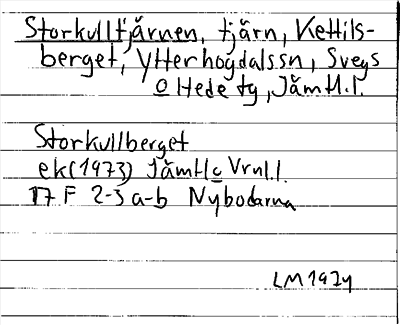 Storkulltjärnen, tjärn, Kettils-
berget, Ytterhogdals sn, Svegs
o Hede tg, Jämtl.l.
Storkullberget
ek(1973) Jämtl o Vrml.l.
17 F 2-3 a-b Nybodarna
LM 1974